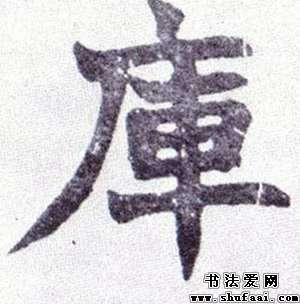 庫
书法爱网
www.shufaai.com